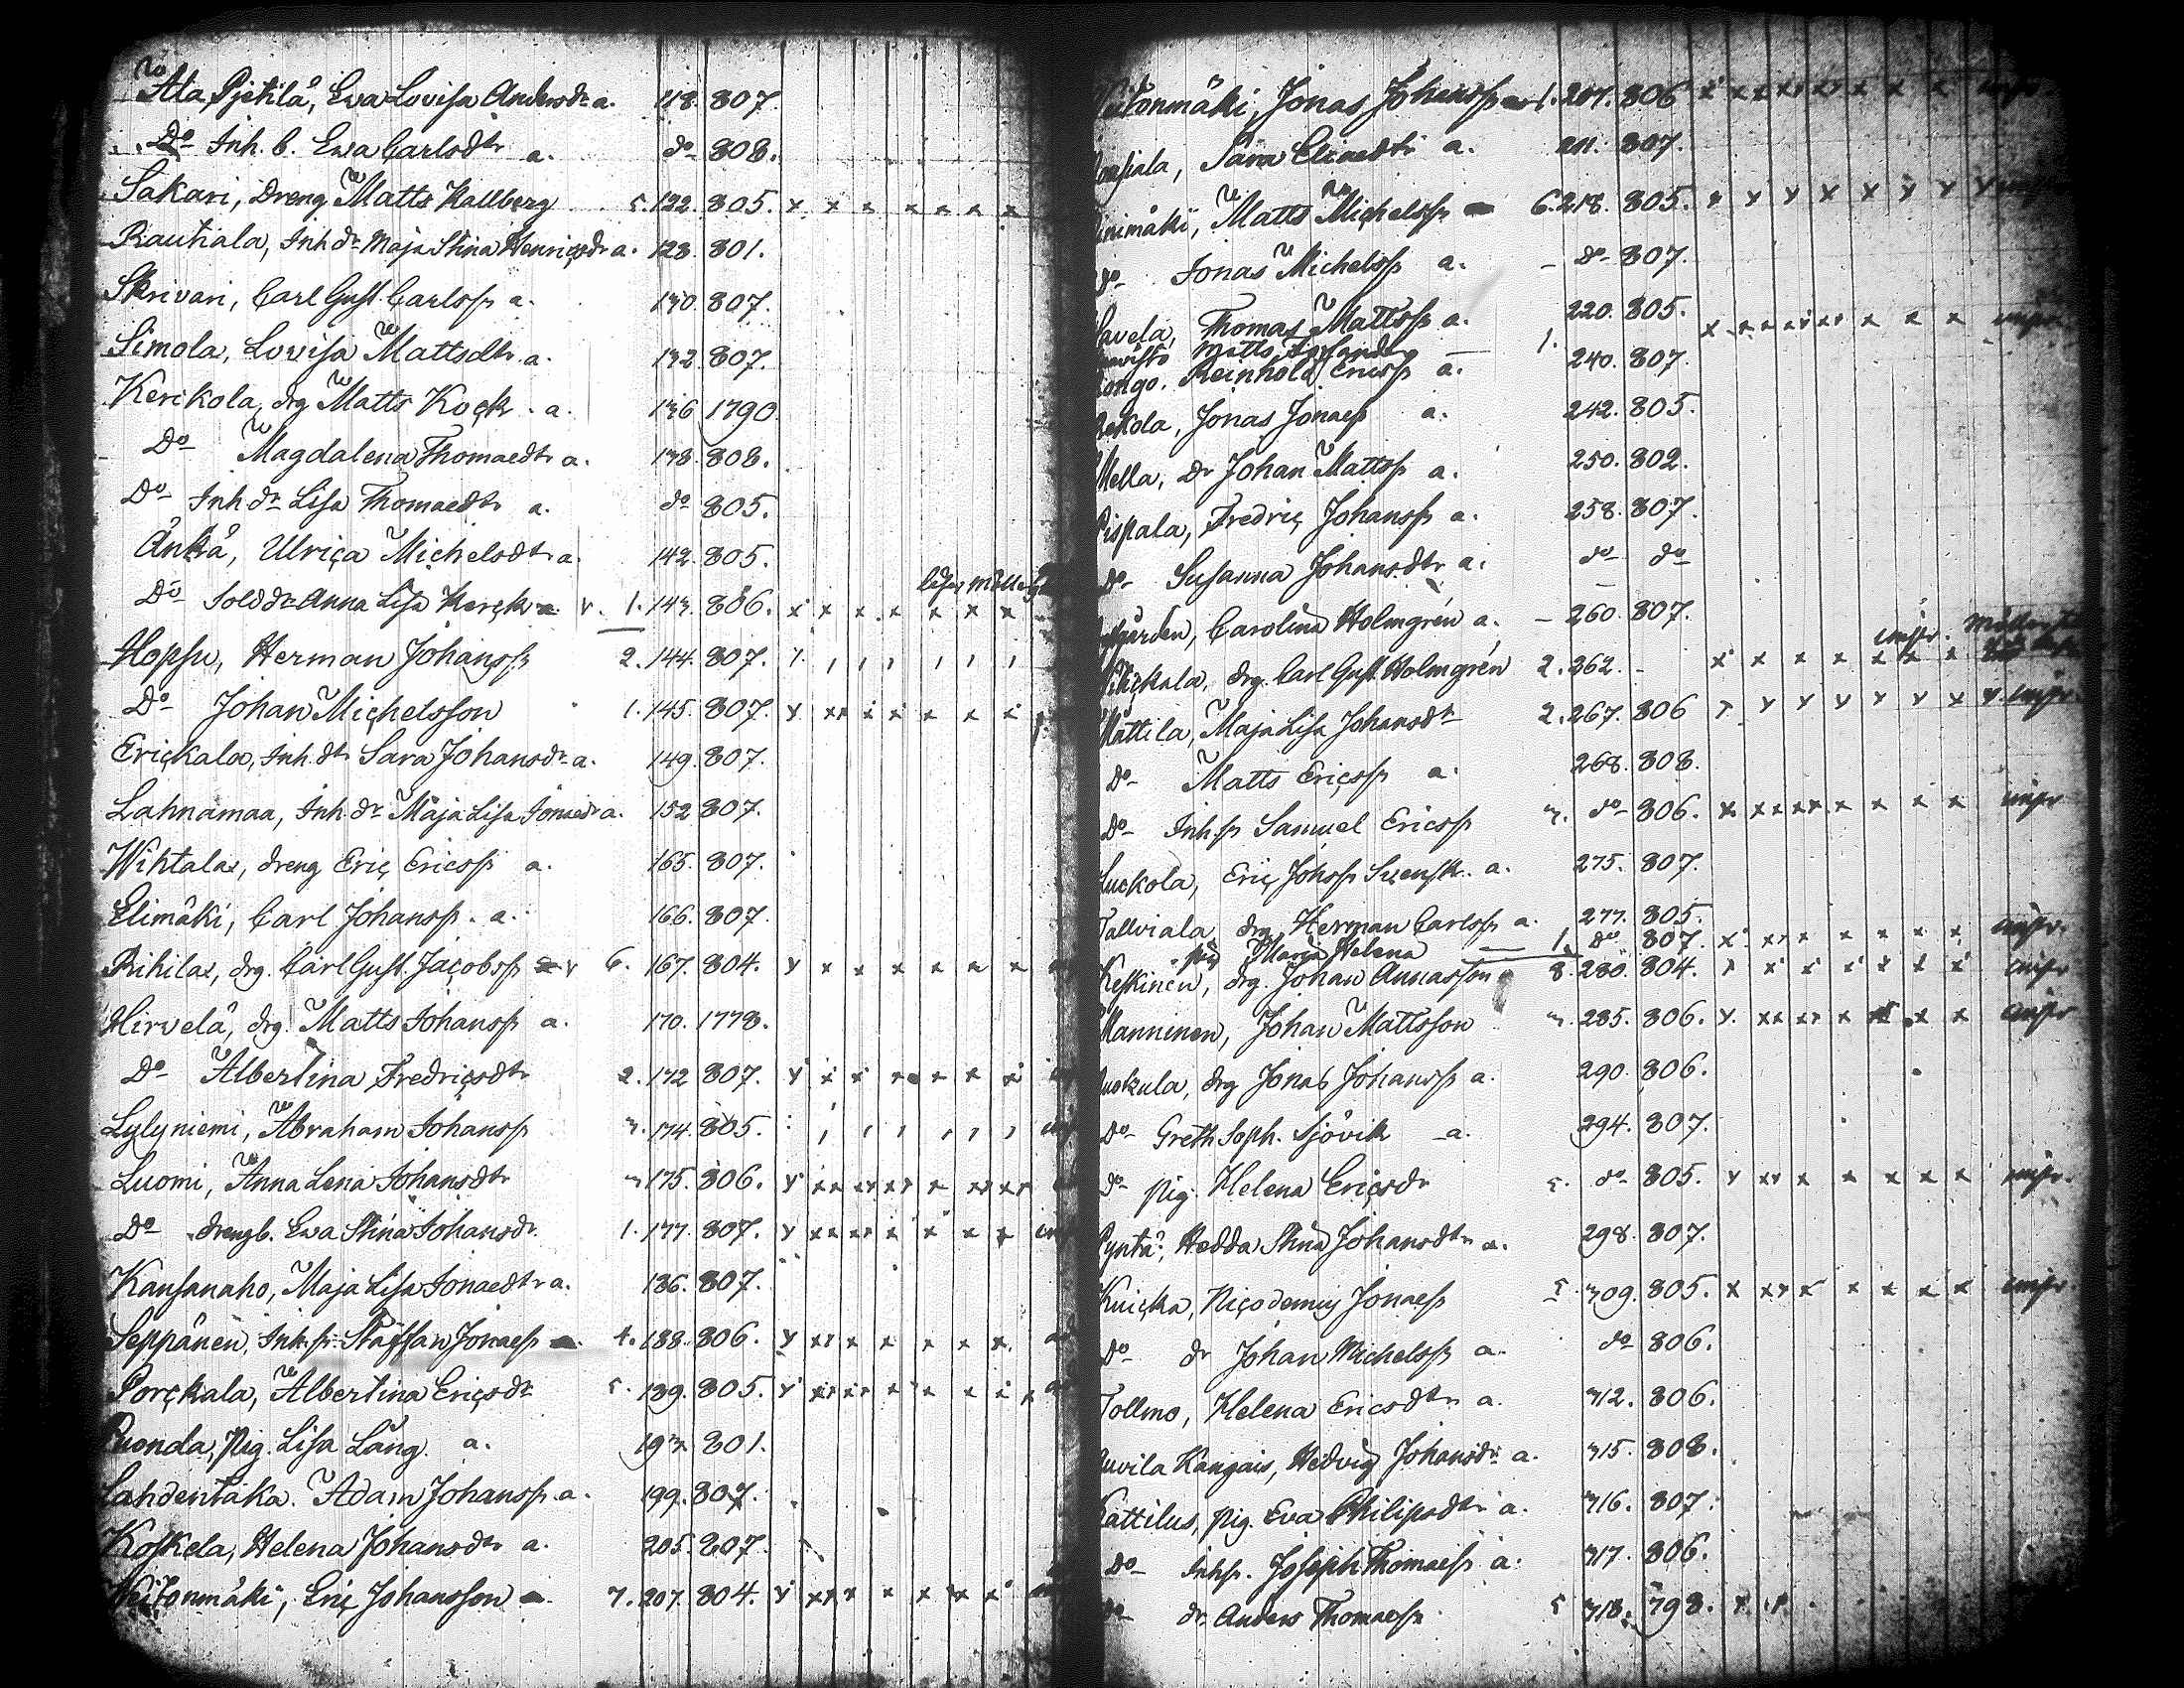 Ala Pjetilä, Ewa Lovisa Andersdr a. 118. 807.
Do Inh. b. Ewa Carlsdtr a. do 808.
Sakari, Dreng Matts Kallberg 5. 122. 805. x x x x x x x
Rautiala, Inh. dr Maja Stina Henricsdr a. 128. 801.
Skrivari, Carl Gust. Carlsson a. 130. 807.
Simola, Lovisa Mattsdtr a. 132. 807.
Kerckola, drg Matts Kock. a. 136 1790.
Do Magdalena Thomaedtr a. 138. 808.
Do Inh dr Lisa Thomaedtr a. do 805.
Änkä, Ulrica Michelsdtr a. 142. 805.
Do Sold dr Anna Lisa 1. 143. 806. x x x x x x x
Hopsu, Herman Johanss. 2. 144. 807.
Do Johan Michelsson 1. 145. 807. x xx x x x x x
Erickala, Inh. dtr Sara Johansdr a. 149. 807.
Lahnamaa, Inh. dr Maja Lisa Jonaedr a. 152 807.
Wihtala, dreng Eric Ericss. a. 165. 807.
Elimäki, Carl Johanss. a. 166. 807.
Rihila, drg. Carl Gust. Jacobss. 6. 167. 804. x x x x x x x
Hirvelä, drg. Matts Johanss. a. 170. 1778.
Do Albertina Fredricsdtr 2. 172 807. x x x x x x x
Lylyniemi, Abraham Johanss. 3. 174. 805.
Luomi, Anna Lena Johansdtr 3 175. 806. x xx xx xx x xx xx
Do drengb. Ewa Stina Johansdr. 1. 177. 807. x xx xx x x x x
Kansanaho, Maja Lisa Jonaedtr a. 186. 807.
Seppänen, Inh. Staffan Jonaess. 4. 188. 806. x xx x x x x x
Porckala, Albertina Ericsdr 5. 189. 805. x xx xx x x x x
Puonda, Pig. Lisa Lång. a. 193. 801.
Lahdentaka. Adam Johanss. a. 199. 807.
Koskela, Helena Johansdtr a. 205. 807.
Weitonmäki, Eric Johansson 7. 207. 804. x xx x x x xx x
Jonas Johanss. 1. 207. 806 x x xx xx x x x
Sara Elia​edtr a. 211. 807.
Matts Michelss. 6. 218. 805. x x x x x x x
Do Jonas Michelss. a. do 807.
Thomas Mattss. a. 220. 805.
Matts 1. x x x x x x x x
Reinhold Ericss. a. 240. 807.
Jonas Jonaess. a. 242. 805.
Mella, Dr Johan Mattss. a. 250. 802.
Pispala, Fredric Johanss. a. 258. 807.
Do Susanna Johansdtr a. do do
Carolina Holmgrén a. 260. 807.
drg. Carl Gust. Holmgrén 2. 262. x x x x x x x
Mattila, Maja Lisa Johansdtr 2. 267. 806 x x x x x x x
Do Matts Ericss. a. 268. 808.
Do Inh. Samuel Ericss. 3. do 806. x xx xx x x x x
Eric Johss. Svensk. a. 275. 807.
Tallviala, drg Herman Carlss. a. 277. 805.
pig Maria Helena 1. do 807. x xx x x x x x
Keskinen, drg. Johan Annasson 8. 280. 804. x x x x x x x
Manninen, Johan Mattsson 3. 285. 806. x xx xx x x x
drg Jonas Johanss. a. 290. 806.
Do Greth. Soph. Sjövik a. 294. 807.
Do Pig. Helena Ericsdr 5. do 805. x xx x x x x x
Pyntä, Hedda Stina Johansdtr a. 298. 807.
Knicka, Nicodemus Jonaess. 5. 309. 805. x xx x x x x x
Do dr Johan Michelss. a. do 806.
Tollmo, Helena Ericsdtr a. 312. 806.
Kangais, Hedvig Johansdr a. 315. 808.
Kattilus, pig. Eva Philipsdtr a. 316. 807.
Do Inh. Joseph Thomaess. a. 317. 806.
Do dr. Anders Thomaess. 5 318. 798. x x